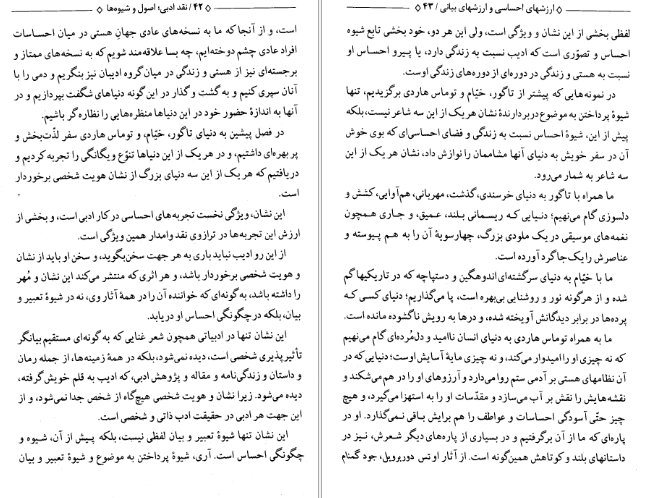 ۴۲ / نقد ادبی؛ اصول و شیوه‌ها
است، و از آنجا که ما به نسخه‌های عادی جهانِ هستی در میان احساسات
افراد عادی چشم دوخته‌ایم، چه بسا علاقه‌مند شویم که به نسخه‌های ممتاز و
برجسته‌ای نیز از هستی و زندگی در میان گروه ادیبان نیز بنگریم و دمی را با
آنان سپری کنیم و به گشت و گذار در این گونه دنیاهای شگفت بپردازیم و در
آنها به اندازۀ حضور خود در این دنیاها منظره‌هایی را نظاره‌گر باشیم.
در فصل پیشین به دنیای تاگور، خیّام، و توماس هاردی سفر لذّت‌بخش و
پر بهره‌ای داشتیم، و در هر یک از این دنیاها تنوّع و یگانگی را تجربه کردیم و
دریافتیم که هر یک از این سه دنیای بزرگ از نشان هویت شخصی برخوردار
است.
این نشان، ویژگی نخست تجربه‌های احساسی در کار ادبی است، و بخشی از
ارزش این تجربه‌ها در ترازوی نقد وامدار همین ویژگی است.
از این رو ادیب نباید باری به هر جهت سخن‌بگوید، و سخن او باید از نشان
و هویت شخصی برخوردار باشد، و هر اثری که منتشر می‌کند این نشان و مُهر
را داشته باشد، به‌گونه‌ای که خواننده آن را در همۀ آثار وی، نه در شیوۀ تعبیر و
بیان، بلکه در چگونگی احساس او دریابد.
این نشان تنها در ادبیاتی همچون شعر غنایی که به گونه‌ای مستقیم بیانگر
تأثیرپذیری شخصی است، دیده نمی‌شود، بلکه در همۀ زمینه‌ها، از جمله رمان
و داستان و زندگی‌نامه و مقاله و پژوهش ادبی، که ادیب به قلم خویش‌گرفته،
دیده می‌شود. زیرا نشان و هویت شخصی هیچ‌گاه از شخص جدا نمی‌شود، و از
این جهت هر ادبی در حقیقت ادب ذاتی و شخصی است.
این نشان تنها شیوۀ تعبیر و بیان لفظی نیست، بلکه پیش از آن، شیوه و
چگونگی احساس است. آری، شیوۀ پرداختن به موضوع و شیوۀ تعبیر و بیان
ارزشهای احساسی و ارزشهای بیانی / ۴۳
لفظی بخشی از این نشان و ویژگی است، ولی این هر دو، خود بخشی تابع شیوه
احساس و تصوّری است که ادیب نسبت به زندگی دارد، یا پیرو احساس او
نسبت به هستی و زندگی در دوره‌ای از دوره‌های زندگی اوست.
در نمونه‌هایی که پیشتر از تاگور، خیّام و توماس هاردی برگزیدیم، تنها
شیوۀ پرداختن به موضوع دربردارندۀ نشان هر یک از این سه شاعر نیست، بلکه
پیش از این، شیوۀ احساس نسبت به زندگی و فضای احساسی‌ای که بوی خوش
آن در سفر خویش به دنیای آنها مشاممان را نوازش داد، نشان هر یک از این
سه شاعر به شمار می‌رود.
ما همراه با تاگور به دنیای خرسندی، گذشت، مهربانی، هم‌آوایی، کشش و
دلسوزی گام می‌نهیم؛ دنیایی که ریسمانی بلند، عمیق، و جاری همچون
نغمه‌های موسیقی در یک ملودی بزرگ، چهارسویۀ آن را به هم پیوسته و
عناصرش را یک‌جا گرد آورده است.
ما با خیّام به دنیای سرگشته‌ای اندوهگین و دستپاچه که در تاریکیها گم
شده و از هرگونه نور و روشنایی بی‌بهره است، پا می‌گذاریم؛ دنیای کسی که
پرده‌ها در برابر دیدگانش آویخته شده، و درها به رویش ناگشوده مانده است.
ما به همراه توماس هاردی به دنیای انسان ناامید و دل‌مُرده‌ای گام می‌نهیم
که نه چیزی او را امیدوار می‌کند، و نه چیزی مایۀ آسایش اوست؛ دنیایی که در
آن نظامهای هستی بر آدمی ستم روا می‌دارد و آرزوهای او را در هم می‌شکند و
نقشه‌هایش را نقش بر آب می‌سازد و مقدّسات او را به استهزا می‌گیرد، و هیچ
چیز حتّی آسودگی احساسات و عواطف را هم برایش باقی نمی‌گذارد. او در
پاره‌ای که ما از آن برگرفتیم و در بسیاری از پاره‌های دیگر شعرش، نیز در
داستانهای بلند و کوتاهش همین‌گونه است. از آثار او تس دوربرویل، جود گمنام